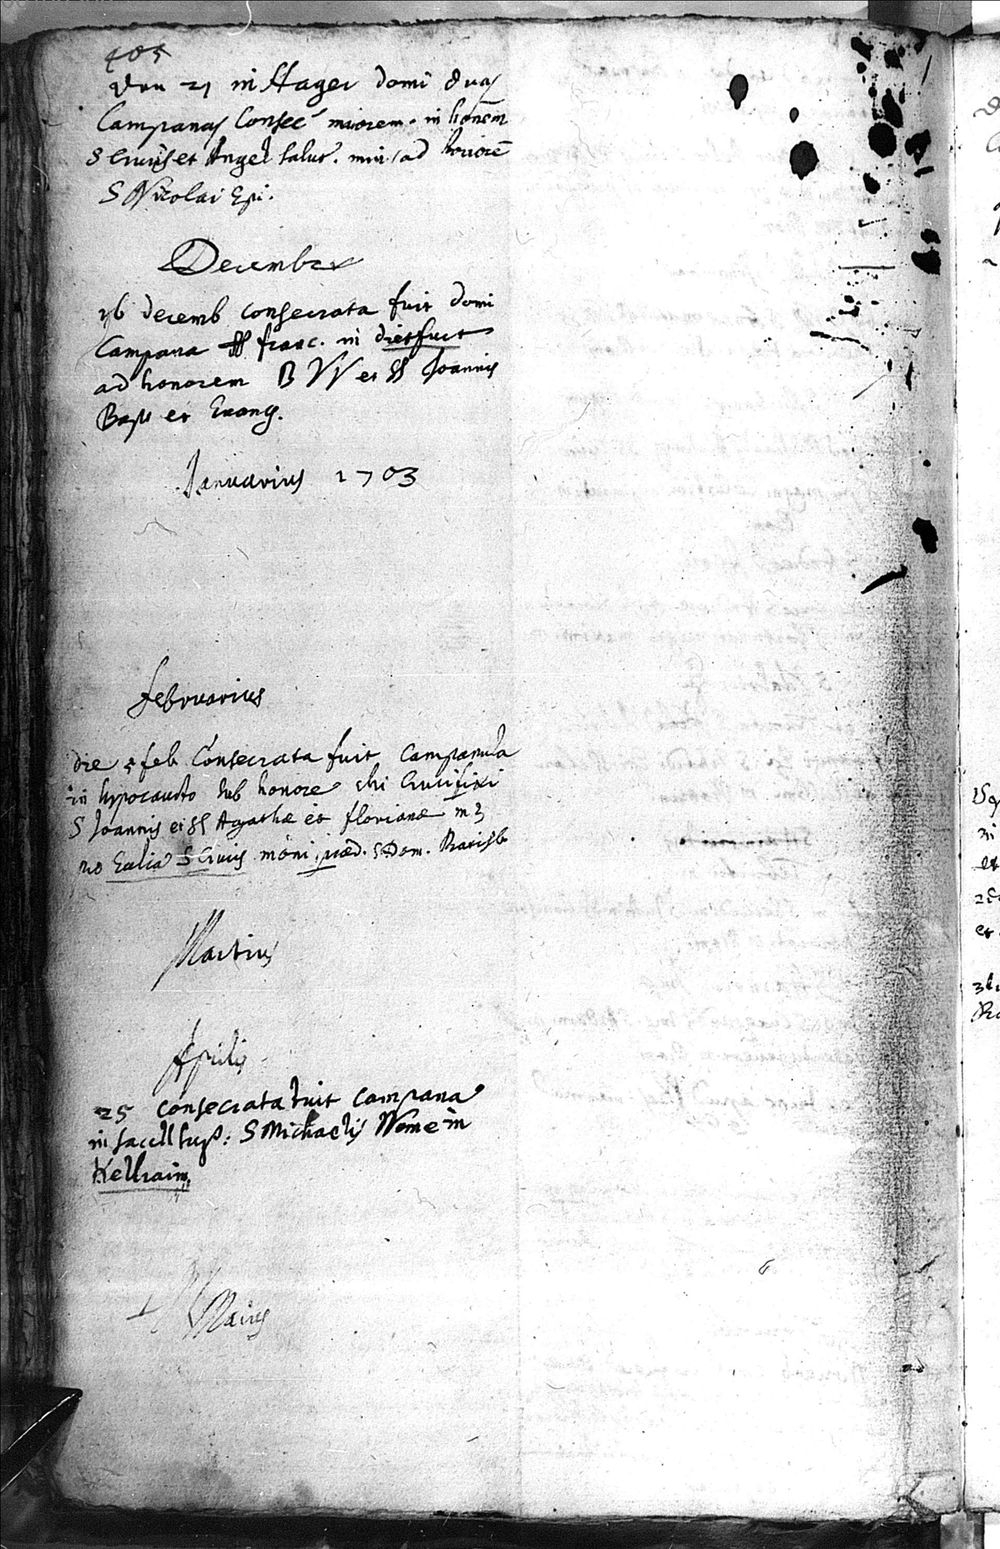 405
21 in Hager domi duas
Campanas Consec miorem. in honem
S Crucis et Angel salut. min. ad honore
S Nicolai Epi.
December
16 decemb consecrata fuit domi
Campana franc. in dietfurt
ad honorem B V et SS Joannis
Bapt et Evang.
Januarius 1703
februarius
die 5 feb Consecrata fuit Campanula
in hypocausto sub honore chi Crucifixi
S Joannis et SS Agathæ et florianæ in
S Crucis moni. præd. S Dom. Ratisb
Martius
Aprilis
25 consecrata fuit campana
in sacell S Michaelis Nomein
Kellhaim
Maius